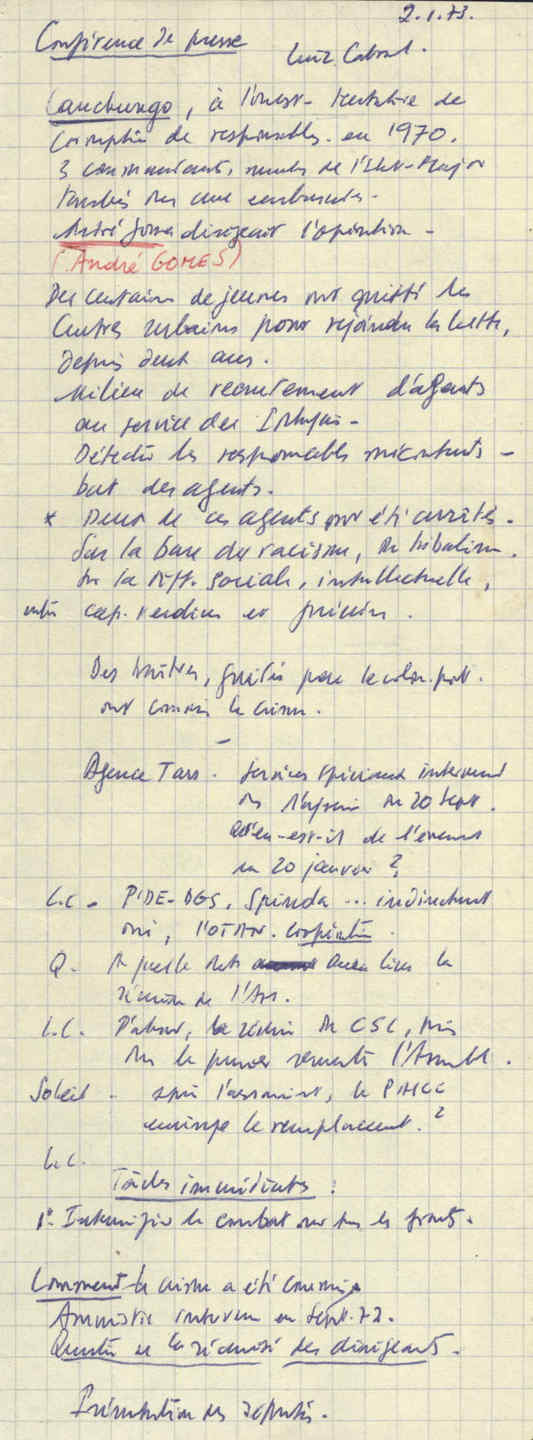 2.1.73.
Conférence de presse
Luiz Cabral.
Canchungo, à l'ouest - tentative de
corruption de responsables. en 1970.
3 commandants, membres de l'Etat-Major
tombés dans une embuscade -
André Gomes dirigeait l'opération -
(André GOMES)
Des centaines de jeunes ont quitté les
Centres urbains pour rejoindre la lutte,
depuis deux ans.
Milieu de recrutement d'agents
au service des
Détecter les responsables mécontents -
but des agents.
* Deux de ces agents ont été arrêtés.
Sur la base du racisme, du tribalisme,
de la diff. sociale, intellectuelle,
entre cap-verdiens et guinéens.
Des traîtres, par le colon. port.
ont commis le crime.
-
Agence Tass - Services spéciaux
20 Sept.
Qu'en-est-il de
du 20 janvier ?
L.C. - PIDE-DGS, Spinola ... indirectement
oui, l'OTAN.
Q. - A quelle date aura lieu la
réunion de l'Ass.
L.C. D'abord, la réunion du CSL, puis
l'Assemblée.
Soleil - après l'assassinat, le PAIGC
envisage le remplacement. ?
L.C.
Tâches immédiates :
1°. Intensifier le combat sur tous les fronts.
Comment le crime a été commis
Amnistie en Sept. 72.
la sécurité des dirigeants.
Présentation des députés.